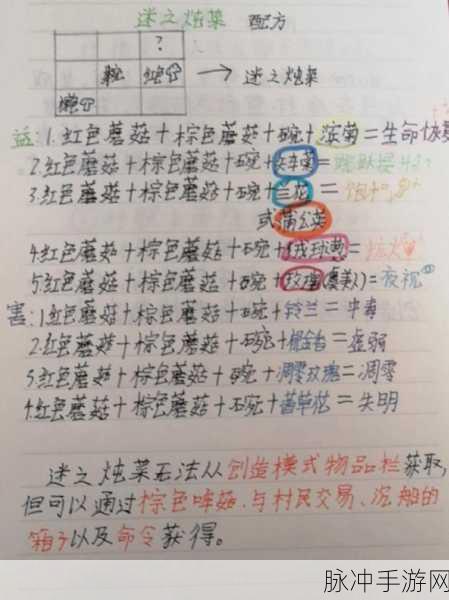 迷之炖菜 配方
?
碗 红 → 迷之炖菜
棕
益:1.红色蘑菇+棕色蘑菇+碗+滨菊=生命恢复
2.红色蘑菇+棕色蘑菇+碗+矢车菊=跳跃提升
3.红色蘑菇+棕色蘑菇+碗+兰花=饱和
或蒲公英
4.红色蘑菇+棕色蘑菇+碗+绒球葱=抗火
5.红色蘑菇+棕色蘑菇+碗+玫瑰(虞美人)=夜视
害:1.红色蘑菇+棕色蘑菇+碗+铃兰=中毒
2.红色蘑菇+棕色蘑菇+碗+郁金香=虚弱
3.红色蘑菇+棕色蘑菇+碗+凋零玫瑰=凋零
4.红色蘑菇+棕色蘑菇+碗+茜草花=失明
迷之炖菜无法从创造模式物品栏获取,
但可以通过棕色哞菇、与村民交易、沉船的
箱子以及命令获得。
脉冲手游网